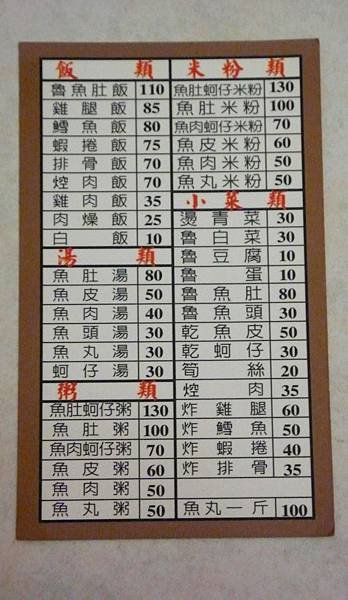 飯 類
魯魚肚飯 110
雞腿飯 85
鱈魚飯 80
蝦捲飯 75
排骨飯 70
焢肉飯 70
雞肉飯 35
肉燥飯 25
白飯 10
湯 類
魚肚湯 80
魚皮湯 50
魚肉湯 40
魚頭湯 30
魚丸湯 30
蚵仔湯 30
粥 類
魚肚蚵仔粥 130
魚肚粥 100
魚肉蚵仔粥 70
魚皮粥 60
魚肉粥 50
魚丸粥 50
米粉類
魚肚蚵仔米粉 130
魚肚米粉 100
魚肉蚵仔米粉 70
魚皮米粉 60
魚肉米粉 50
魚丸米粉 50
小菜類
燙青菜 30
魯白菜 30
魯豆腐 10
魯蛋 10
魯魚肚 80
魯魚頭 30
乾魚皮 50
乾蚵仔 30
筍絲 20
焢肉 35
炸雞腿 60
炸鱈魚 50
炸蝦捲 40
炸排骨 35
魚丸一斤 100